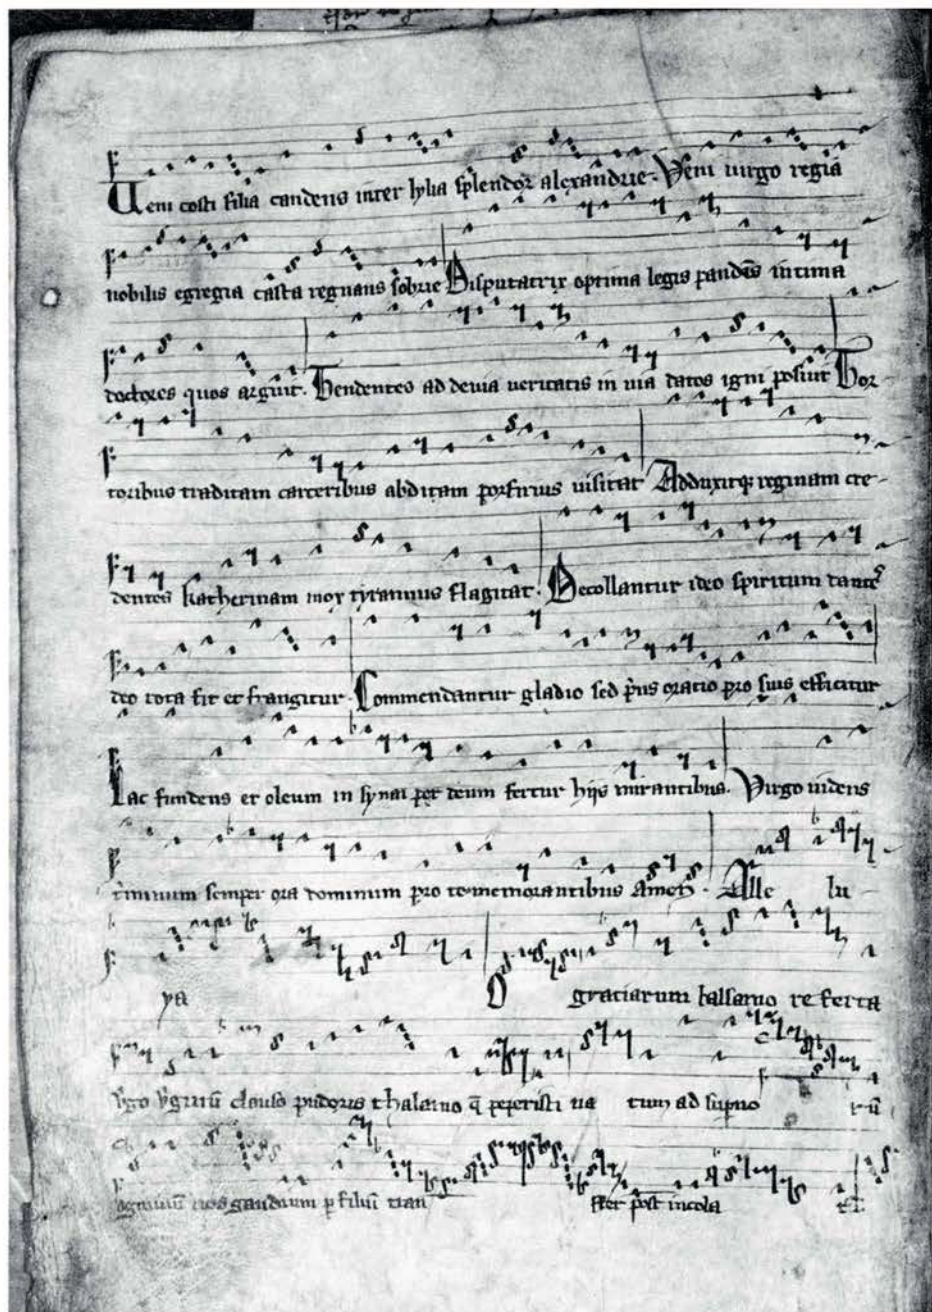 Veni costi filia candens inter lylia splendor alexandrie. Veni uirgo regia
nobilis egregia casta regnans sobrie Disputatrix optima legis pandens intima
doctores quos arguit. Tendentes ad deuia ueritatis in uia datos igni posuit Tor-
toribus traditam carceribus abditam porfirius uisitat Adduxitque reginam cre-
dentes katherinam mox tyrannus flagitat. Decollantur ideo spiritum dantes
deo rota fit et frangitur. Commendantur gladio sed prius oratio pro suis efficitur
Lac fundens et oleum in synai per deum fertur hijs mirantibus. Virgo uidens
terminum semper ora dominum pro te memorantibus amen. Alle lu-
ya O graciarum balsamo referta
virgo virginum clauso pudoris thalamo que peperisti natum ad superno rum
agminum nos gaudium per filium tran sfer post incola tum